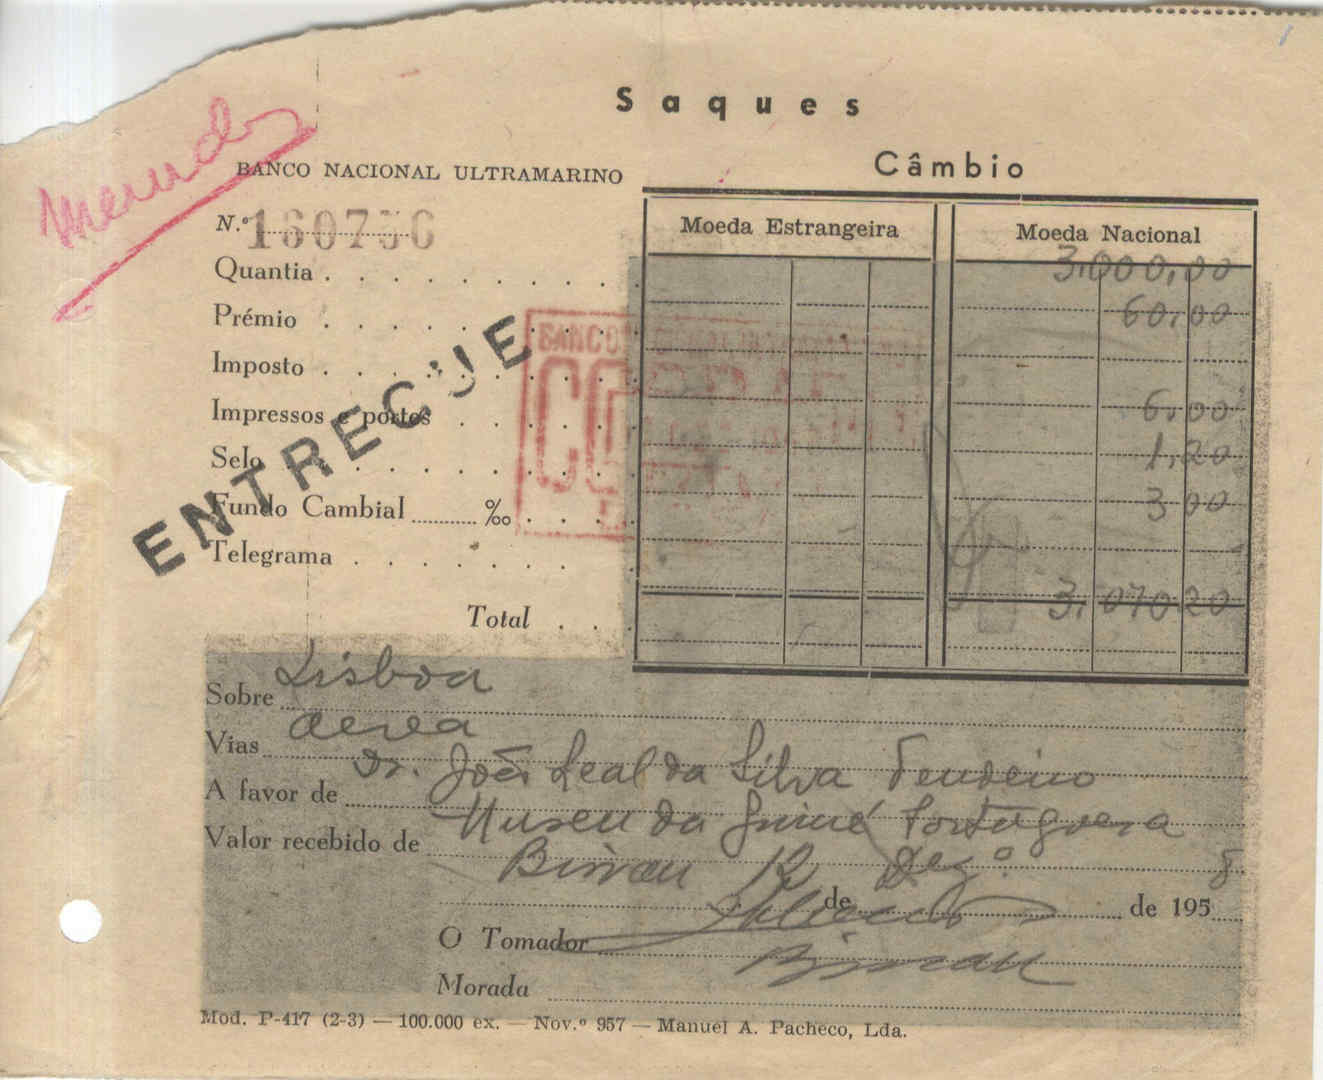 Saques
Câmbio
BANCO NACIONAL ULTRAMARINO
N.º
Moeda Estrangeira
Moeda Nacional
Quantia 3.000,00
Prémio 60,00
Imposto
Impressos e portes 6,00
Selo 1,20
Fundo Cambial ‰ 3 00
Telegrama
Total 3.070 20
ENTREGUE
BANCO
Sobre Lisboa
Vias aerea
A favor de Dr. João Leal da Silva Tendeiro
Valor recebido de Museu da Guiné Portuguesa
Bissau 12 de Dez.º de 1958
O Tomador
Morada Bissau
Mod. P-417 (2-3) — 100.000 ex. — Nov.º 957 — Manuel A. Pacheco, Lda.